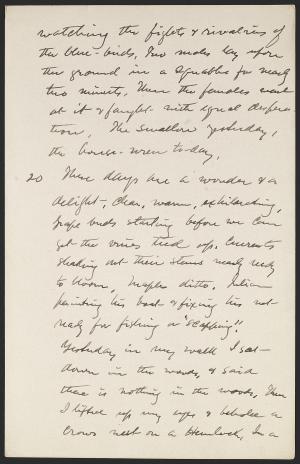 watching the fights & rivalries of
the blue-birds. Two males lay upon
the ground in a squabble for nearly
two minutes. Then the females went
at it & fought with equal despera
tion. The swallow yesterday,
the house-wren to-day.
20 These days are a wonder & a
delight, clear, warm, exhilarating,
Grape buds starting before we can
get the vines tied up. Currants
shaking out their stems nearly ready
to bloom, maples ditto. Julian
painting his boat & fixing his net
ready for fishing or "scapping."
Yesterday in my walk I sat-
down in the woods, & said
there is nothing in the woods, Then
I lifted up my eyes & behold a
crows nest on a Hemlock, In a